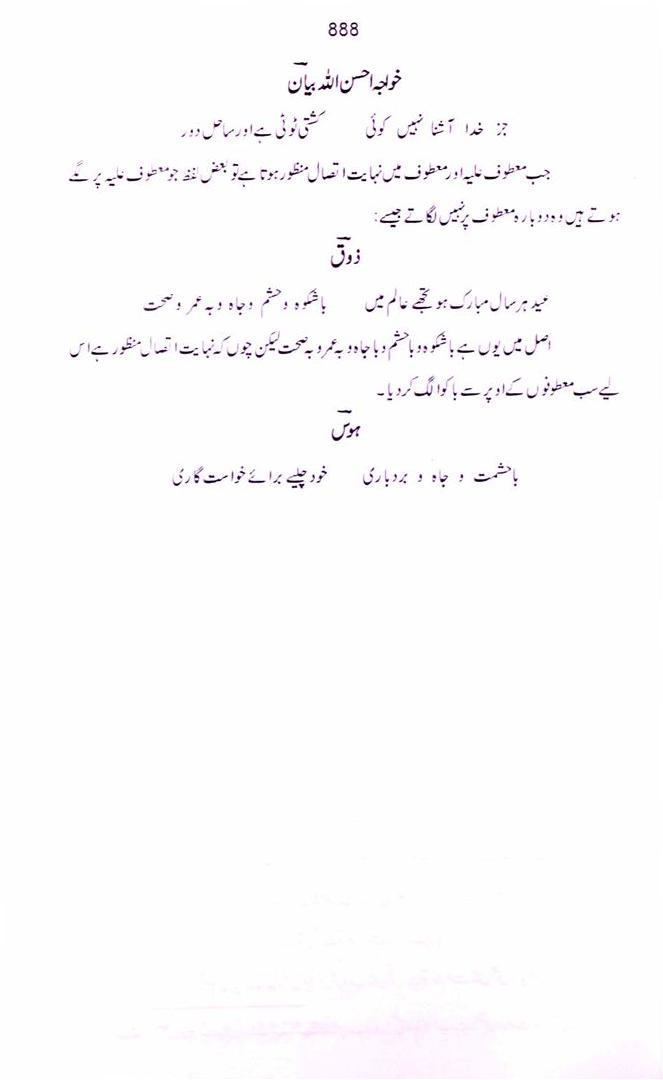 888
خواجہ احسن اللہ بیان
جز خدا آشنا نہیں کوئی کشتی ٹوٹی ہے اور ساحل دور
جب معطوف علیہ اور معطوف میں نہایت اتصال منظور ہوتا ہے تو بعض لفظ جو معطوف علیہ پر لگے
ہوتے ہیں وہ دوبارہ معطوف پر نہیں لگاتے جیسے:
ذوق
عید ہر سال مبارک ہو تجھے عالم میں باشکوہ و حشم و جاہ و بہ عمر و صحت
اصل میں یوں ہے باشکوہ و باحشم و باجاہ و بہ عمر و بہ صحت لیکن چوں کہ نہایت اتصال منظور ہے اس
لیے سب معطوفوں کے اوپر سے با کو الگ کر دیا۔
ہوس
باحشمت و جاہ و بردباری خود چلیے برائے خواست گاری